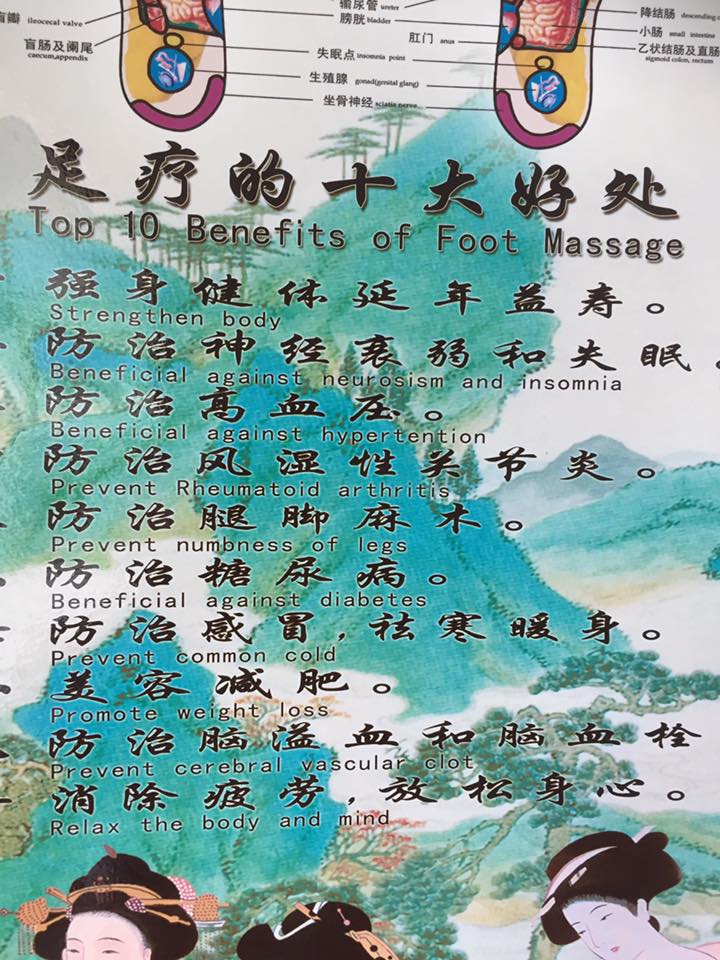 输尿管 ureter
膀胱 bladder
盲瓣 ileocecal valve
盲肠及阑尾
caecum,appendix
肛门 anus
失眠点 insomnia point
生殖腺 gonad(genital glang)
坐骨神经 sciatis nerve
降结肠 descending
小肠 small intestine
乙状结肠及直肠
sigmoid colon, rectum
足疗的十大好处
Top 10 Benefits of Foot Massage
强身健体延年益寿。
Strengthen body
防治神经衰弱和失眠。
Beneficial against neurosism and insomnia
防治高血压。
Beneficial against hypertention
防治风湿性关节炎。
Prevent Rheumatoid arthritis
防治腿脚麻木。
Prevent numbness of legs
防治糖尿病。
Beneficial against diabetes
防治感冒,祛寒暖身。
Prevent common cold
美容减肥。
Promote weight loss
防治脑溢血和脑血栓
Prevent cerebral vascular clot
消除疲劳,放松身心。
Relax the body and mind